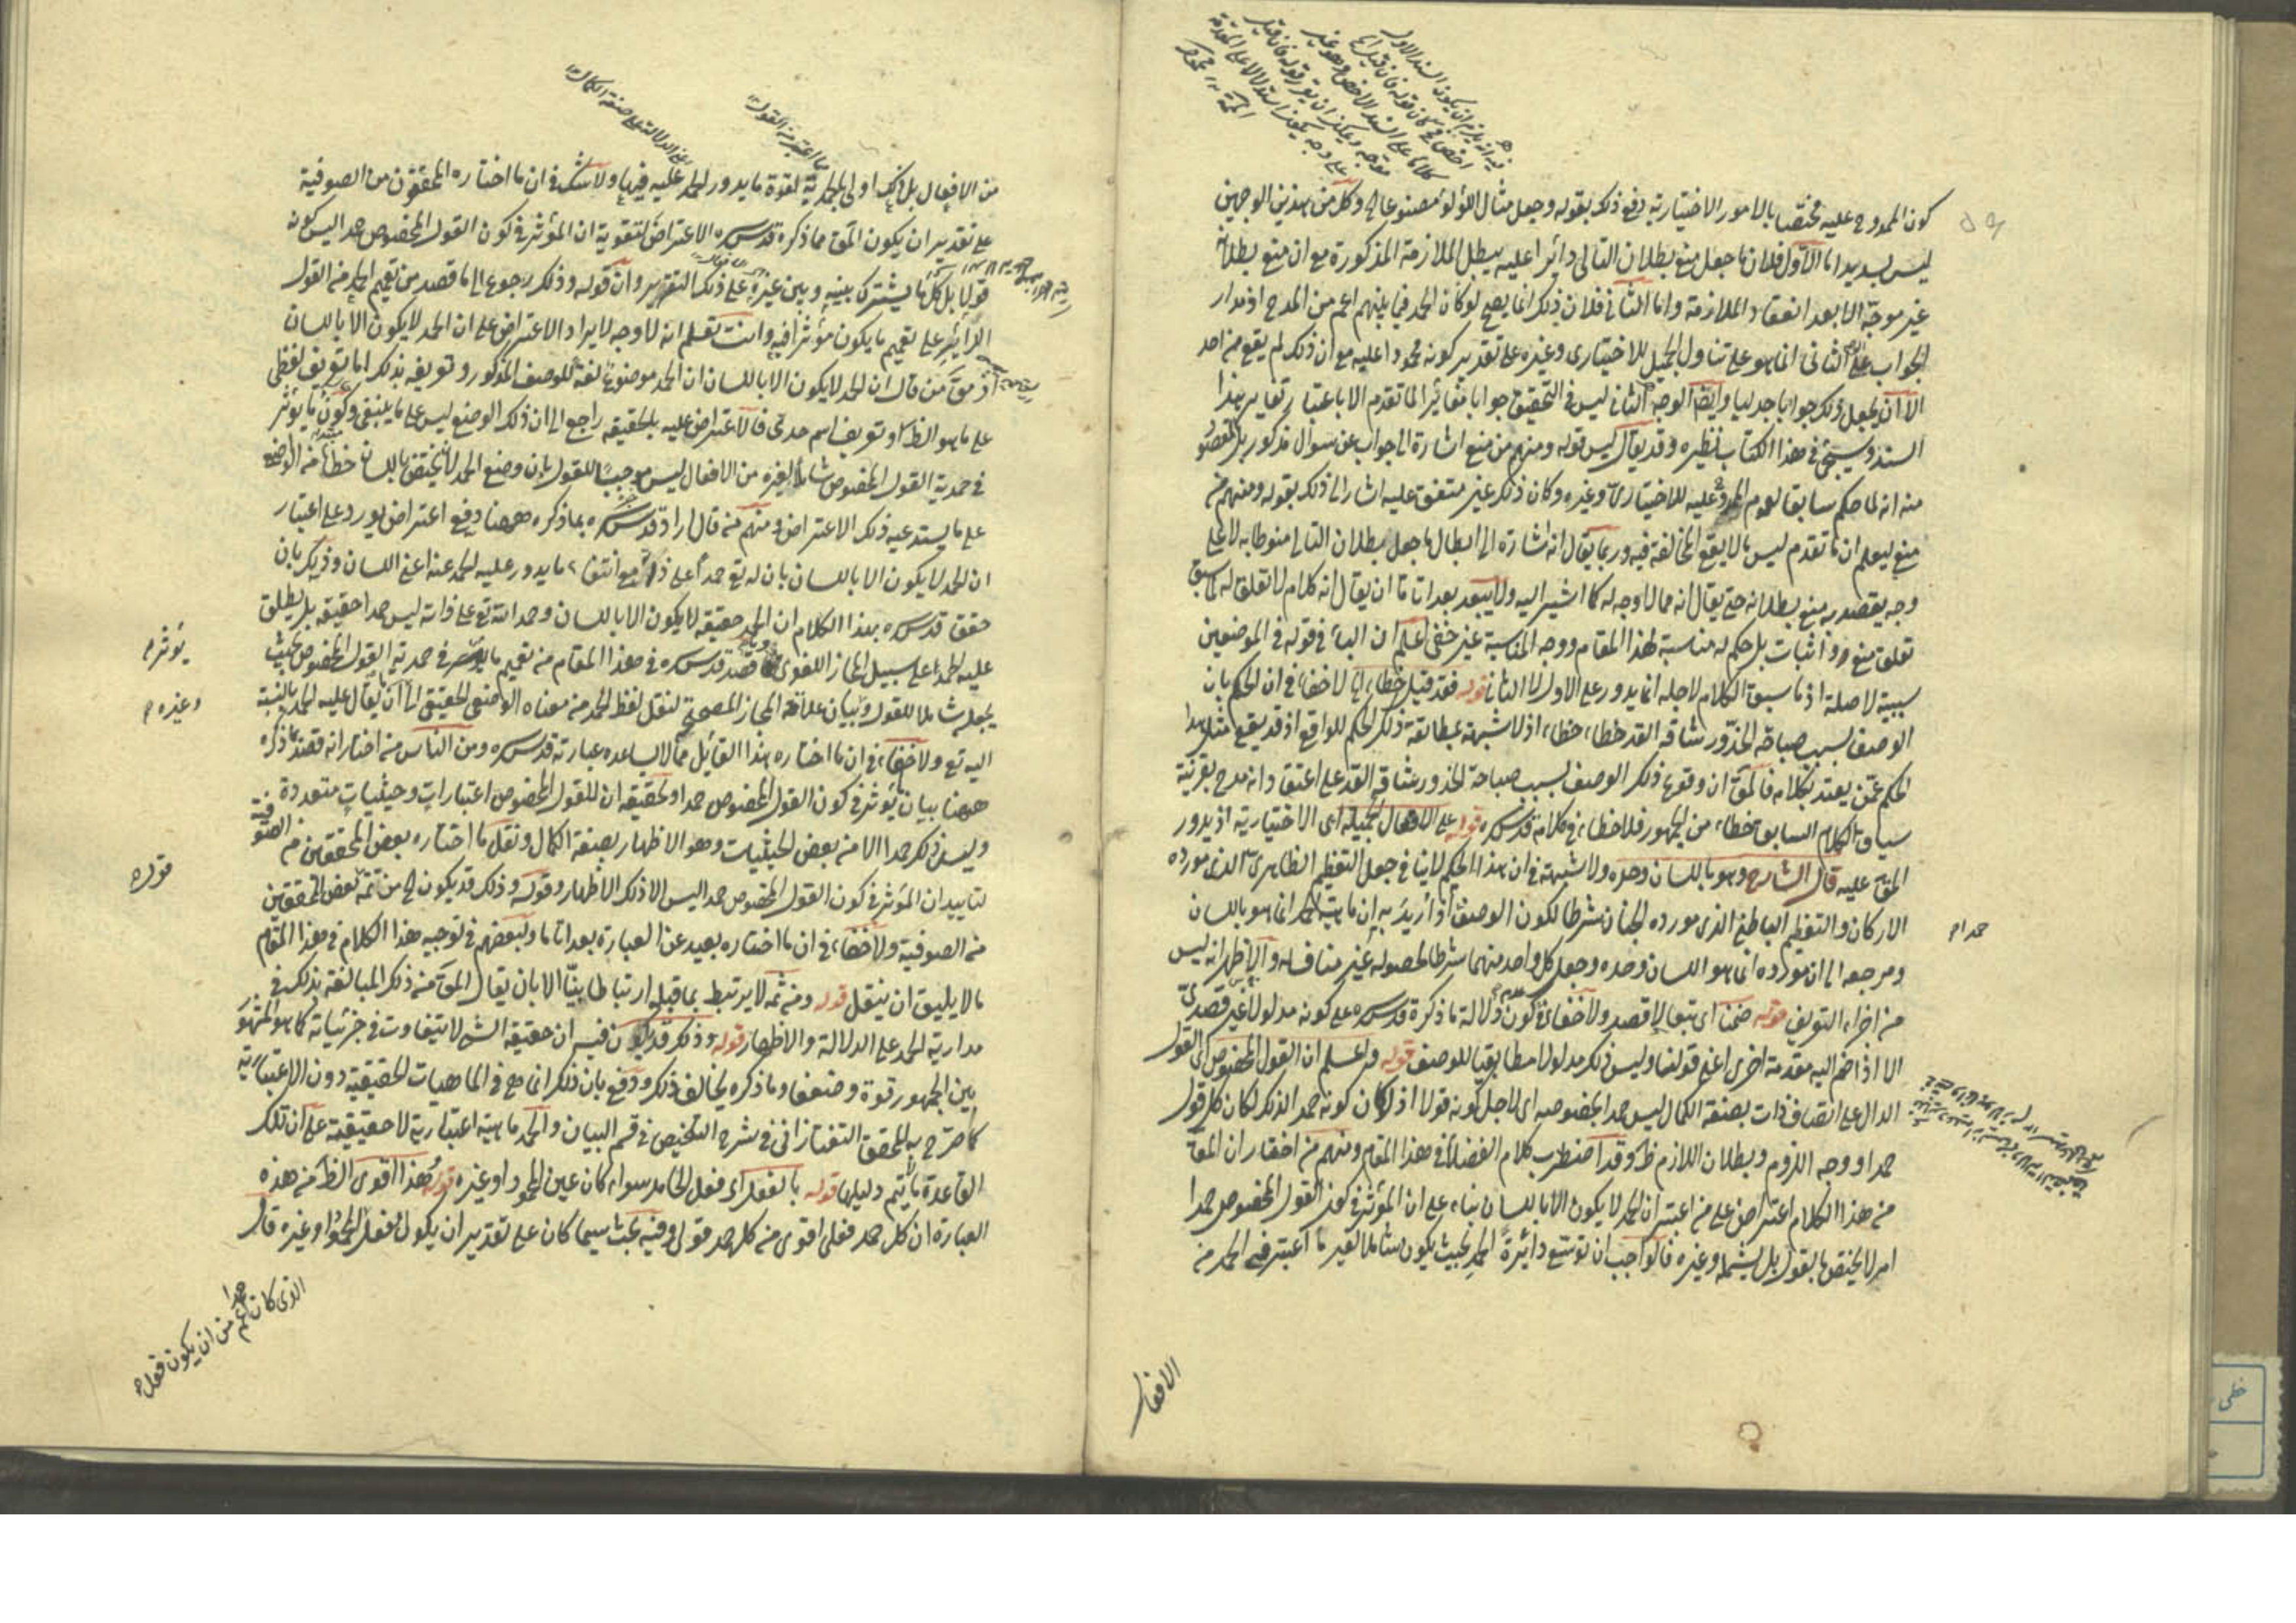 كون الممدوح عليه مختصا بالامور الاختيارية دفع ذلك بقوله وجعل مثال اللؤلؤ مصنوعا وكل من هذين الوجهين
ليس بسديد اما الاول فلان ما جعل منع بطلان التالى دائرا عليه يبطل الملازمة المذكورة مع ان منع بطلان
غير موجه الا بعد انعقاد الملازمة واما الثانى فلان ذلك انما يصح لو كان الحمد فيما بينهم اعم من المدح اذ مدار
الجواب على الثانى انما هو على تناول الجميل للاختيارى وغيره على تقدير كونه محمودا عليه مع ان ذلك لم يقع من احد
الا ان يجعل ذلك جوابا جدليا وايضا الوجه الثانى ليس فى التحقيق جوابا مغائرا لما تقدم الا باعتبار تغاير هذا
السند وسيجئ فى هذا الكتاب نظيره وقد يقال ليس قوله ومنهم من منع اشارة الى جواب عن سؤال مذكور بل المقصود
منه انه لما حكم سابقا لعموم المحمود عليه للاختيارى وغيره وكان ذلك غير متفق عليه اشار الى ذلك بقوله ومنهم من
منع ليعلم ان ما تقدم ليس مما لا يقع المخالفة فيه وربما يقال انه اشارة الى ابطال ما جعل بطلان التالى منوطا به لا على
وجه يقصد به منع بطلانه حتى يقال انه مما لا وجه له كما اشير اليه ولا يبعد بعدا تاما ان يقال انه كلام لا تعلق له بما سبق
تعلق منع او اثبات بل حكم له مناسبة لهذا المقام ووجه المناسبة غير خفى اعلم ان الباء فى قوله فى الموضعين
سببية لا صلة اذ ما سبق الكلام لاجله انما يدور على الاول لا الثانى قوله فقد قيل خطاء لا خفاء فى ان الحكم بان
الوصف بسبب صباحة الخد ورشاقة القد خطاء خطاء اذ لا شبهة بمطابقة ذلك الحكم للواقع اذ قد يقع مثل هذا
الحكم عمن يعتد بكلامه فالحق ان وقوع ذلك الوصف بسبب صباحة الخد ورشاقة القد على اعتقاد انه مدح بقرينة
سياق الكلام السابق خطاء من الجمهور فلا خطاء فى كلام قدس سره قوله على الافعال الجميلة اى الاختيارية اذ يدور
الحق عليه قال الشارح وهو باللسان وحده ولا شبهة فى ان هذا الحكم لا ينافى جعل التعظيم الظاهرى الذى مورده
الاركان والتعظيم الباطنى الذى مورده الجنان شرطا لكون الوصف اذ اريد به ان ماهية الحمد انما هو باللسان
ومرجعه الى ان مورده انما هو اللسان وحده وجعل كل واحد منهما شرطا لحصوله غير مناف له والاظهر انه ليس
من اجزاء التعريف قوله ضمنا اى تبعا لا قصدا ولا خفاء فى كون دلالة ما ذكره قدس سره على كونه مدلولا غير قصدى
الا اذا ضم اليه مقدمة اخرى اعنى قولنا وليس ذلك مدلولا مطابقيا للوصف قوله واعلم ان القول المخصوص اى القول
الدال على اتصاف ذات بصفة الكمال ليس حمدا بخصوصه اى لاجل كونه قولا اذ لو كان كونه حمدا لذلك لكان كل قول
حمدا ووجه اللزوم وبطلان اللازم ظ وقد اضطرب كلام الفضلاء فى هذا المقام ومنهم من اختار ان المق
من هذا الكلام اعتراض على من اعتبر ان الحمد لا يكون الا باللسان بناء على ان المؤثر فى كون القول المخصوص حمدا
امر لا يختص بالقول بل يشمله وغيره فالواجب ان توسع دائرة الحمد بحيث يكون شاملا لغير ما اعتبر فيه الحمد من
الافعال
حمدا م
من الافعال بل ذلك اولى بالحمدية لقوة ما يدور الحمد عليه فيها ولا شك فى ان ما اختاره المحققون من الصوفية
على تقدير ان يكون المق مما ذكره قدس سره الاعتراض لتقوية ان المؤثر فى كون القول المخصوص حمدا ليس كونه
قولا بل كل ما يشترك بينه وبين غيره على ذلك التقدير وان قوله وذلك رجوع الى ما قصد من تعميم الحمد من القول
الدائر على تعميم ما يكون مؤثرا فيه وانت تعلم انه لا وجه لايراد الاعتراض على ان الحمد لا يكون الا باللسان
اذ مق من قال ان الحمد لا يكون الا باللسان ان الحمد موضوع لغة للوصف المذكور وتعريفه بذلك اما تعريف لفظى
على ما هو الظ او تعريف اسم حدى فالاعتراض عليه بالحقيقة راجع الى ان ذلك الوضع ليس على ما ينبغى وكون ما يؤثر
فى حمدية القول المخصوص شاملا لغيره من الافعال ليس موجبا للقول بان وضع الحمد لما يختص باللسان خطاء من الواضع
على ما يستدعيه ذلك الاعتراض ومنهم من قال اراد قدس سره بما ذكره ههنا دفع اعتراض يورد على اعتبار
ان الحمد لا يكون الا باللسان بان له تع حمدا على ذاته مع انتفاء ما يدور عليه الحمد عنه اعنى اللسان وذلك بان
حقق قدس سره بهذا الكلام ان الحمد حقيقة لا يكون الا باللسان وحمد الله تع على ذاته ليس حمدا حقيقة بل يطلق
عليه الحمد على سبيل المجاز اللغوى قصد قدس سره فى هذا المقام من تعميم ما يؤثر فى حمدية القول المخصوص بحيث
يجعله شاملا للقول وبيان علاقة المجاز المصحح لنقل لفظ الحمد من معناه الوضعى الحقيقى الى ان يقال عليه الحمد بالنسبة
اليه تع ولا خفاء فى ان ما اختاره هذا القائل مما لا يساعده عبارته قدس سره ومن الناس من اختار انه قصد بما ذكره
ههنا بيان ما يؤثر فى كون القول المخصوص حمدا وتحقيقه ان للقول المخصوص اعتبارات وحيثيات متعددة
وليس ذلك حمدا الا من بعض الحيثيات وهو الاظهار بصفة الكمال ونقل ما اختاره بعض المحققين من الصوفية
لتاييد ان المؤثر فى كون القول المخصوص حمدا ليس الا ذلك الاظهار وقوله وذلك قد يكون من تتمة بعض المحققين
من الصوفية ولا خفاء فى ان ما اختاره بعيد عن العبارة بعدا تاما ولبعضهم فى توجيه هذا الكلام فى هذا المقام
ما لا يليق ان ينقل قوله ومن ثمه لا يرتبط بما قبله ارتباطا بينا الا بان يقال المق من ذلك المبالغة بذلك فى
مدارية الحمد على الدلالة والاظهار قوله وذلك قد يكون فيه ان حقيقة الشئ لا يتفاوت فى جزئياته كما هو المشهور
بين الجمهور قوة وضعفا وما ذكره يخالف ذلك ودفع بان ذلك انما هو فى الماهيات الحقيقية دون الاعتبارية
كما صرح به المحقق التفتازانى فى شرح التلخيص فى قسم البيان والحمد ماهية اعتبارية لا حقيقية على ان تلك
القاعدة ما لم يتم دليلها قوله بالفعل اى فعل الحامد سواء كان عين المحمود او غيره قوله هذا اقوى الظ من هذه
العبارة ان كل حمد فعلى اقوى من كل حمد قولى وفيه بحث سيما كان على تقدير ان يكون فعل المحمود او غيره قال
يؤثر م
وغيره م
قوله
الذى كان حمدا اعم من ان يكون فعل